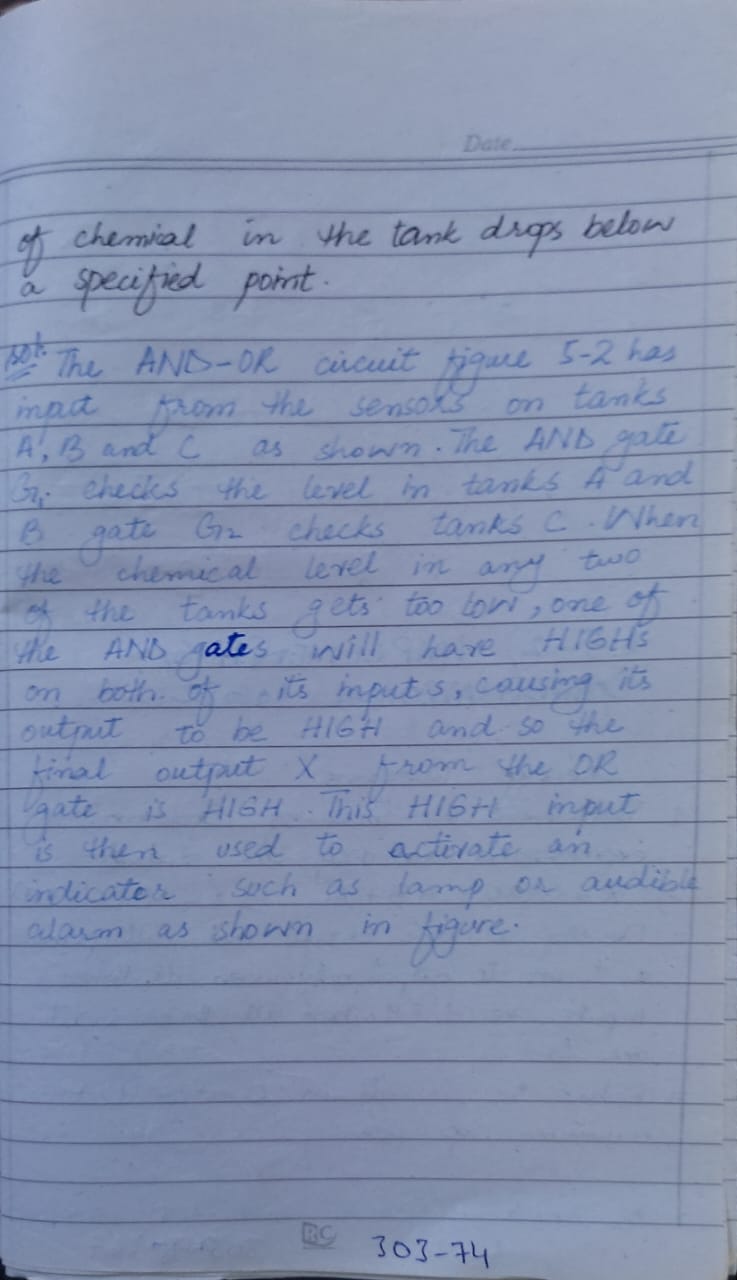 Date
of chemical in the tank drops below
a specified point.
Sol. The AND-OR circuit figure 5-2 has
input from the sensors on tanks
A, B and C as shown. The AND gate
G1. checks the level in tanks A and
B gate G2 checks tanks C. When
the chemical level in any two
of the tanks gets too low, one of
the AND gates will have HIGHs
on both of its inputs, causing its
output to be HIGH and so the
final output X from the OR
gate is HIGH. This HIGH input
is then used to activate an
indicator such as lamp or audible
alarm as shown in figure.
BC
303-74